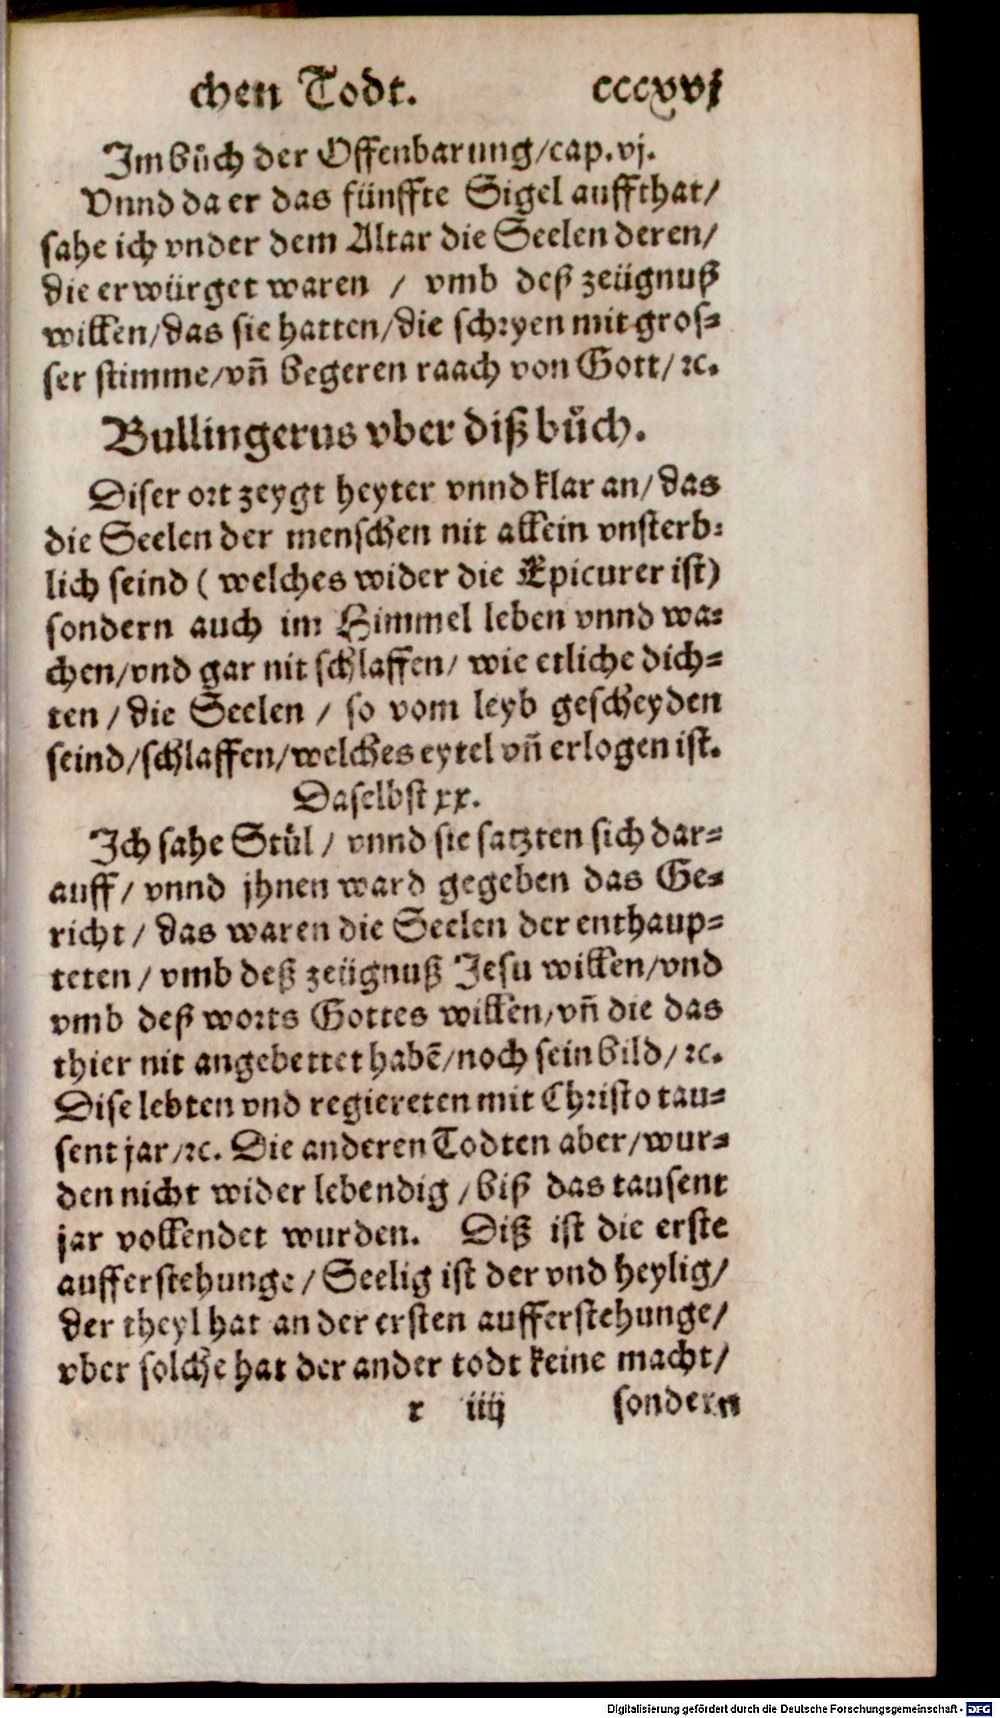 chen Todt. cccxvj
Im bůch der Offenbarung/cap.vj.
Vnnd da er das fünffte Sigel auffthat/
sahe ich vnder dem Altar die Seelen deren/
die erwürget waren / vmb deß zeügnuß
willen/das sie hatten/die schryen mit gros=
ser stimme/vñ begeren raach von Gott/ꝛc.
Bullingerus vber diß bůch.
Diser ort zeygt heyter vnnd klar an/das
die Seelen der menschen nit allein vnsterb=
lich seind ( welches wider die Epicurer ist)
sondern auch im Himmel leben vnnd wa=
chen/vnd gar nit schlaffen/ wie etliche dich=
ten / die Seelen / so vom leyb gescheyden
seind/schlaffen/welches eytel vñ erlogen ist.
Daselbst xx.
Ich sahe Stůl / vnnd sie satzten sich dar=
auff/ vnnd jhnen ward gegeben das Ge=
richt / das waren die Seelen der enthaup=
teten / vmb deß zeügnuß Jesu willen/vnd
vmb deß worts Gottes willen/vñ die das
thier nit angebettet habẽ/noch sein bild/ꝛc.
Dise lebten vnd regiereten mit Christo tau=
sent jar/ꝛc. Die anderen Todten aber/wur=
den nicht wider lebendig / biß das tausent
jar vollendet wurden. Diß ist die erste
aufferstehunge/ Seelig ist der vnd heylig/
der theyl hat an der ersten aufferstehunge/
vber solche hat der ander todt keine macht/
r iiij sondern
Digitalisierung gefördert durch die Deutsche Forschungsgemeinschaft - DFG